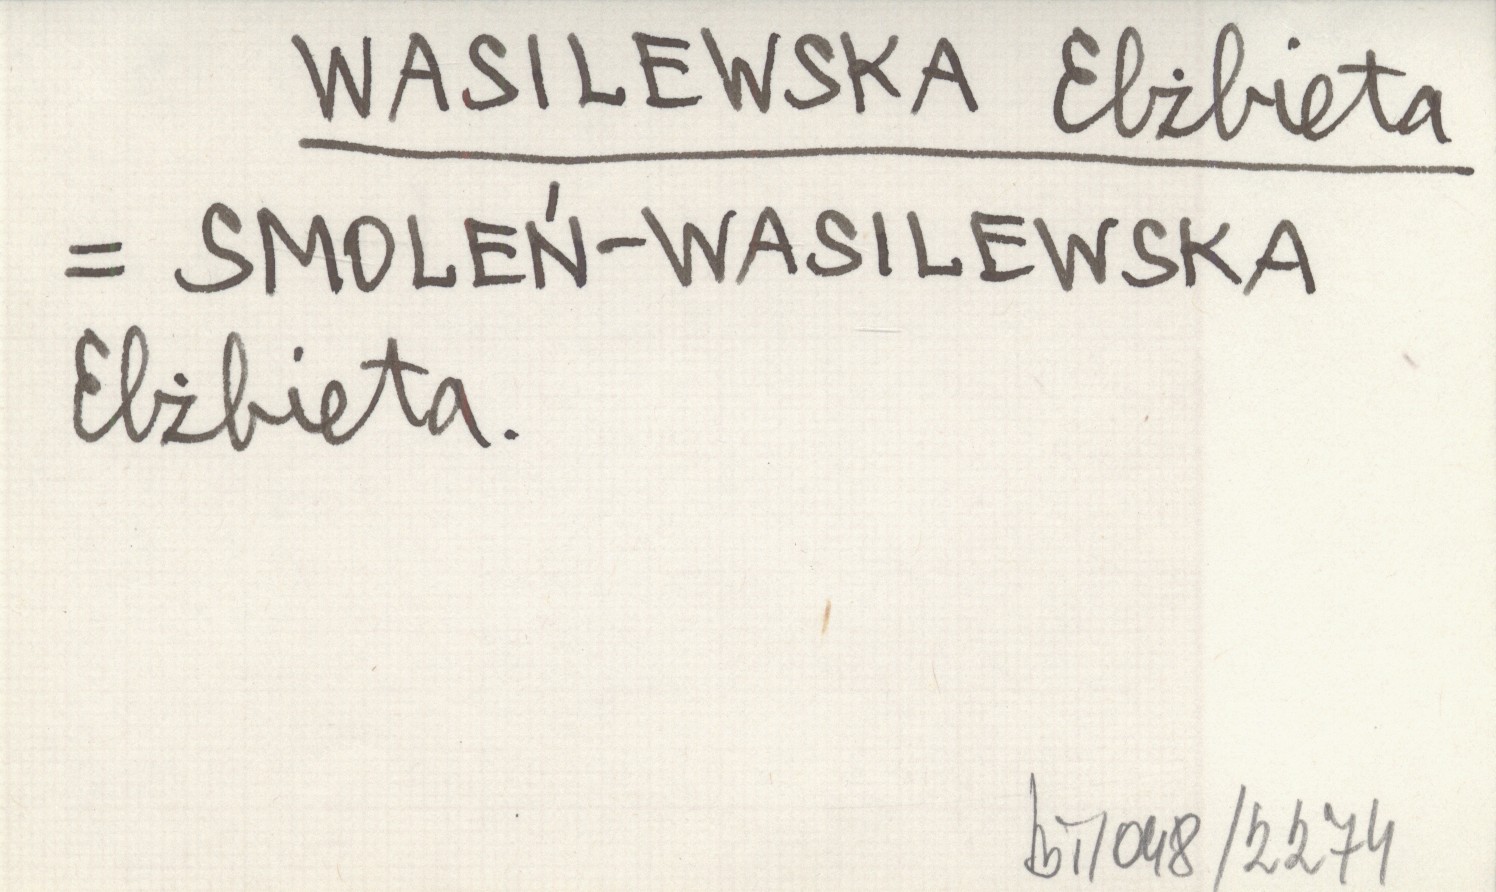 WASILEWSKA Elżbieta
= SMOLEŃ-WASILEWSKA
Elżbieta.
bT/048/2274